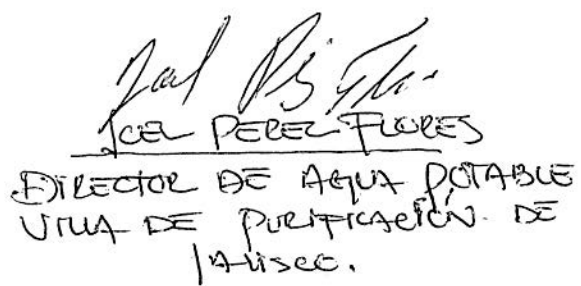 JOEL PEREZ FLORES
DIRECTOR DE AGUA POTABLE
VILLA DE PURIFICACIÓN DE
JALISCO.